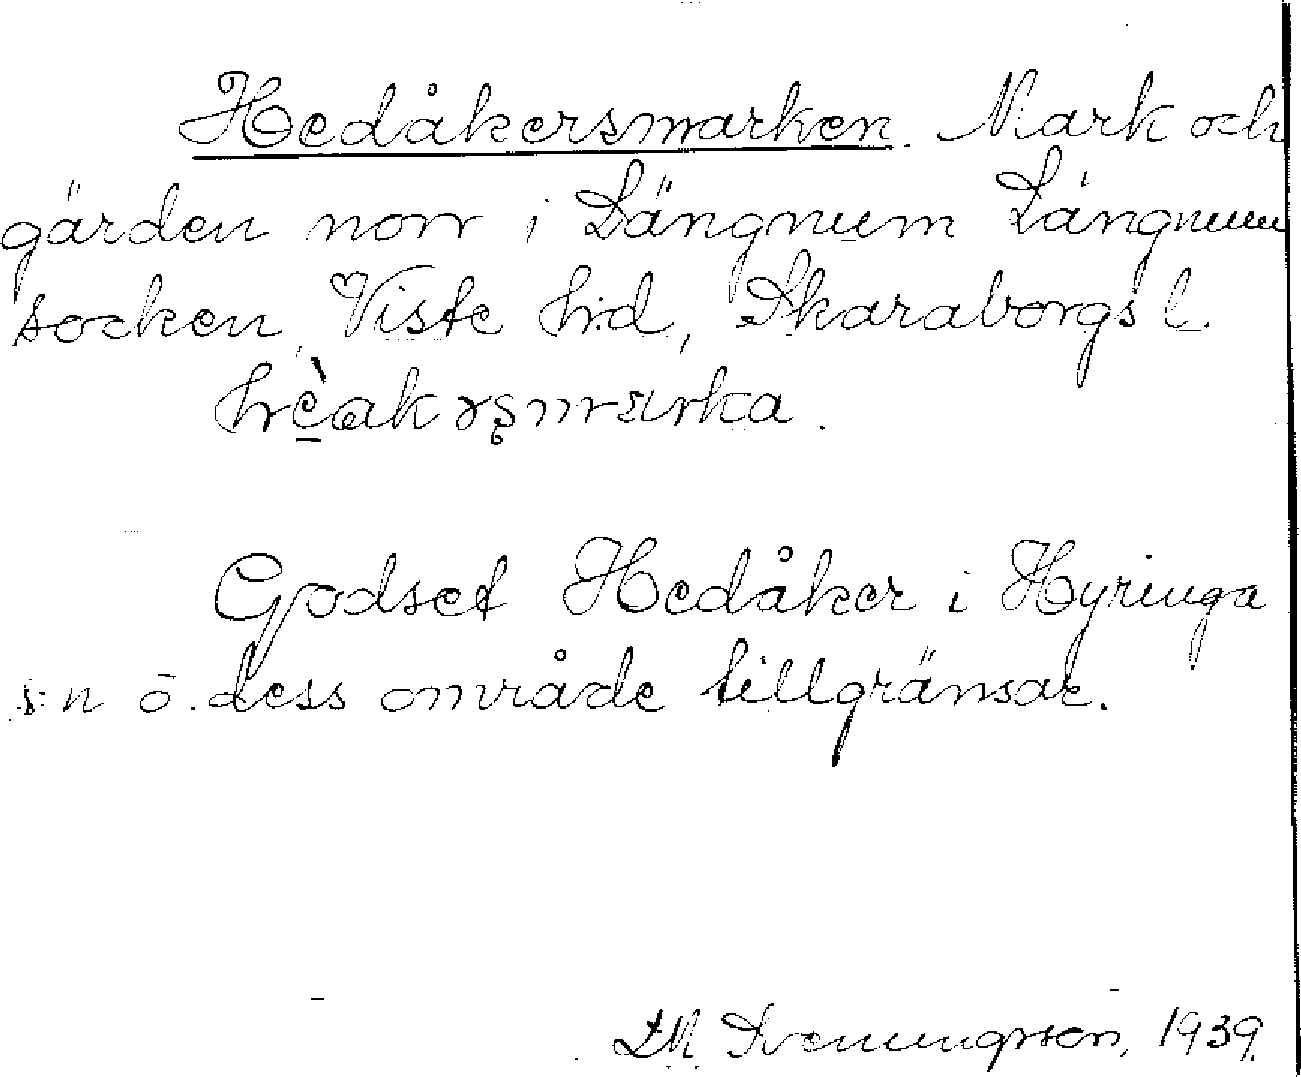 Hedåkersmarken. Mark och
gärden norr i Längnum Längnum
socken, Viste hd, Skaraborgs l.
Godset Hedåker i Hyringa
s:n o. dess område tillgränsar.
LM Svenungsson, 1939.